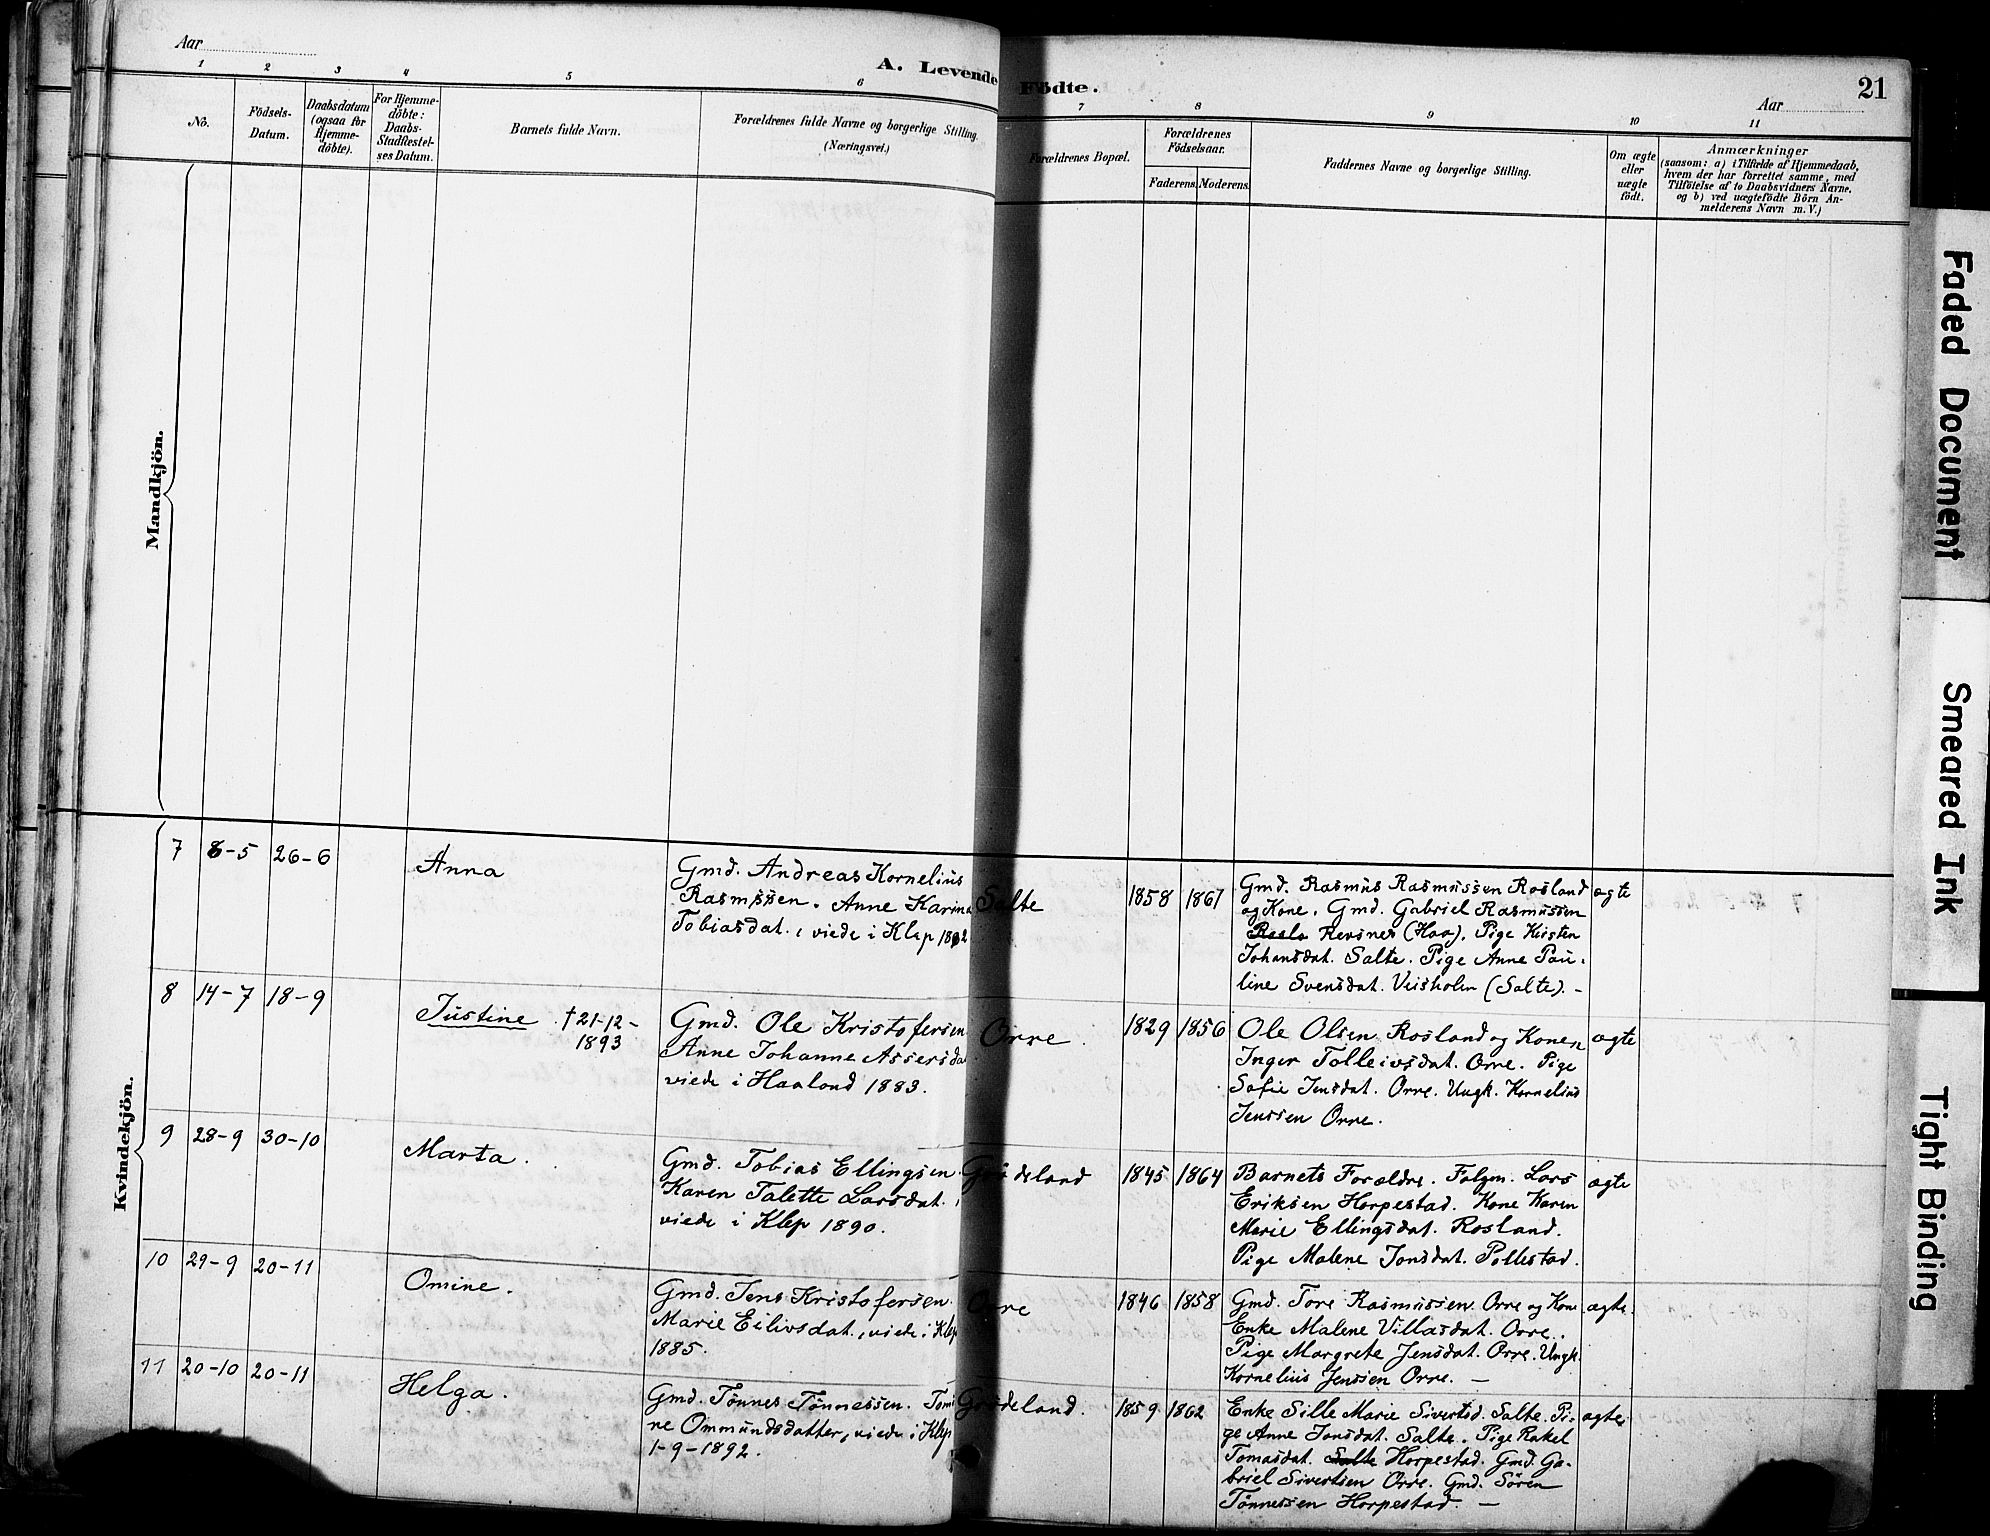 Aar
A. Levende Födte.
Aar
21
1 2 3 4 5 6 7 8 9 10 11
No.
Födsels-
Datum.
Daabsdatum
(ogsaa for
Hjemme-
döbte).
For Hjemme-
döbte:
Daabs-
Stadfæstel-
ses Datum.
Barnets fulde Navn.
Forældrenes fulde Navne og borgerlige Stilling.
(Næringsvei.)
Forældrenes Bopæl.
Forældrenes
Födselsaar.
Faderens. Moderens.
Faddernes Navne og borgerlige Stilling.
Om ægte
eller
uægte
födt.
Anmærkninger
(saasom: a) i Tilfælde af Hjemmedaab,
hvem der har forrettet samme, med
Tilföielse af to Daabsvidners Navne,
og b) ved uægtefödte Börn An-
melderens Navn m. V.)
Mandkjön.
Kvindekjön.
7 6-5 26-6
Anna
Gmd. Andreas Kornelius
Rasmussen. Anne Karina
Tobiasdat., viede i Klep
Salte
1858 1867
Gmd. Rasmus Rasmussen Rosland
og Kone. Gmd. Gabriel Rasmussen
(Haa). Pige Kirsten
Johansdat. Salte. Pige Anne Pau-
line Svensdat. (Salte). -
ægte
8 14-7 18-9
Justine
† 21-12-
1893
Gmd. Ole Kristofersen
Anne Johanne Assersdat
viede i Haaland 1883.
Orre.
1829 1856
Ole Olsen Rosland og Konen
Inger Tolleivsdat. Orre. Pige
Sofie Jensdat. Orre. Ungk. Kornelius
Jenssen Orre.
ægte
9 28-9 30-10
Marta.
Gmd. Tobias Ellingsen.
Karen Talette Larsdat.,
viede i Klep 1890.
Grudeland
1845 1864
Barnets Forældre. Folgm. Lars
Eriksen Horpestad. Kone Karen
Marie Ellingsdat. Rosland.
Pige Malene Jonsdat. Pollestad.
ægte
10 29-9 20-11
Omine.
Gmd. Jens Kristofersen.
Marie Eilivsdat., viede i Klep
1885.
Orre
1846 1858
Gmd. Tore Rasmussen Orre og Kone
Enke Malene Villasdat. Orre.
Pige Margrete Jensdat. Orre. Ungk.
Kornelius Jenssen Orre. -
ægte.
11 20-10 20-11
Helga.
Gmd. Tönnes Tönnessen. Tomi
ne Ommundsdatter, viede i Klep
1-9-1892.
Grudeland.
1859 1862
Enke Sille Marie Sivertsd. Salte. Pi-
ge Anne Jonsdat. Salte. Pige Rakel
Tomasdat. Salte Horpestad. Gmd. Ga-
briel Sivertsen Orre. Gmd. Sören
Tönnessen Horpestad. -
ægte
Faded Document
Smeared Ink
Tight Binding